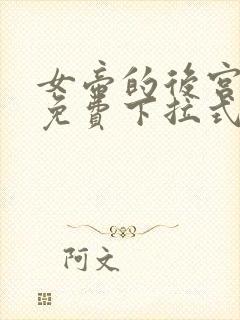 女帝的後宮
免費下拉式
阿文